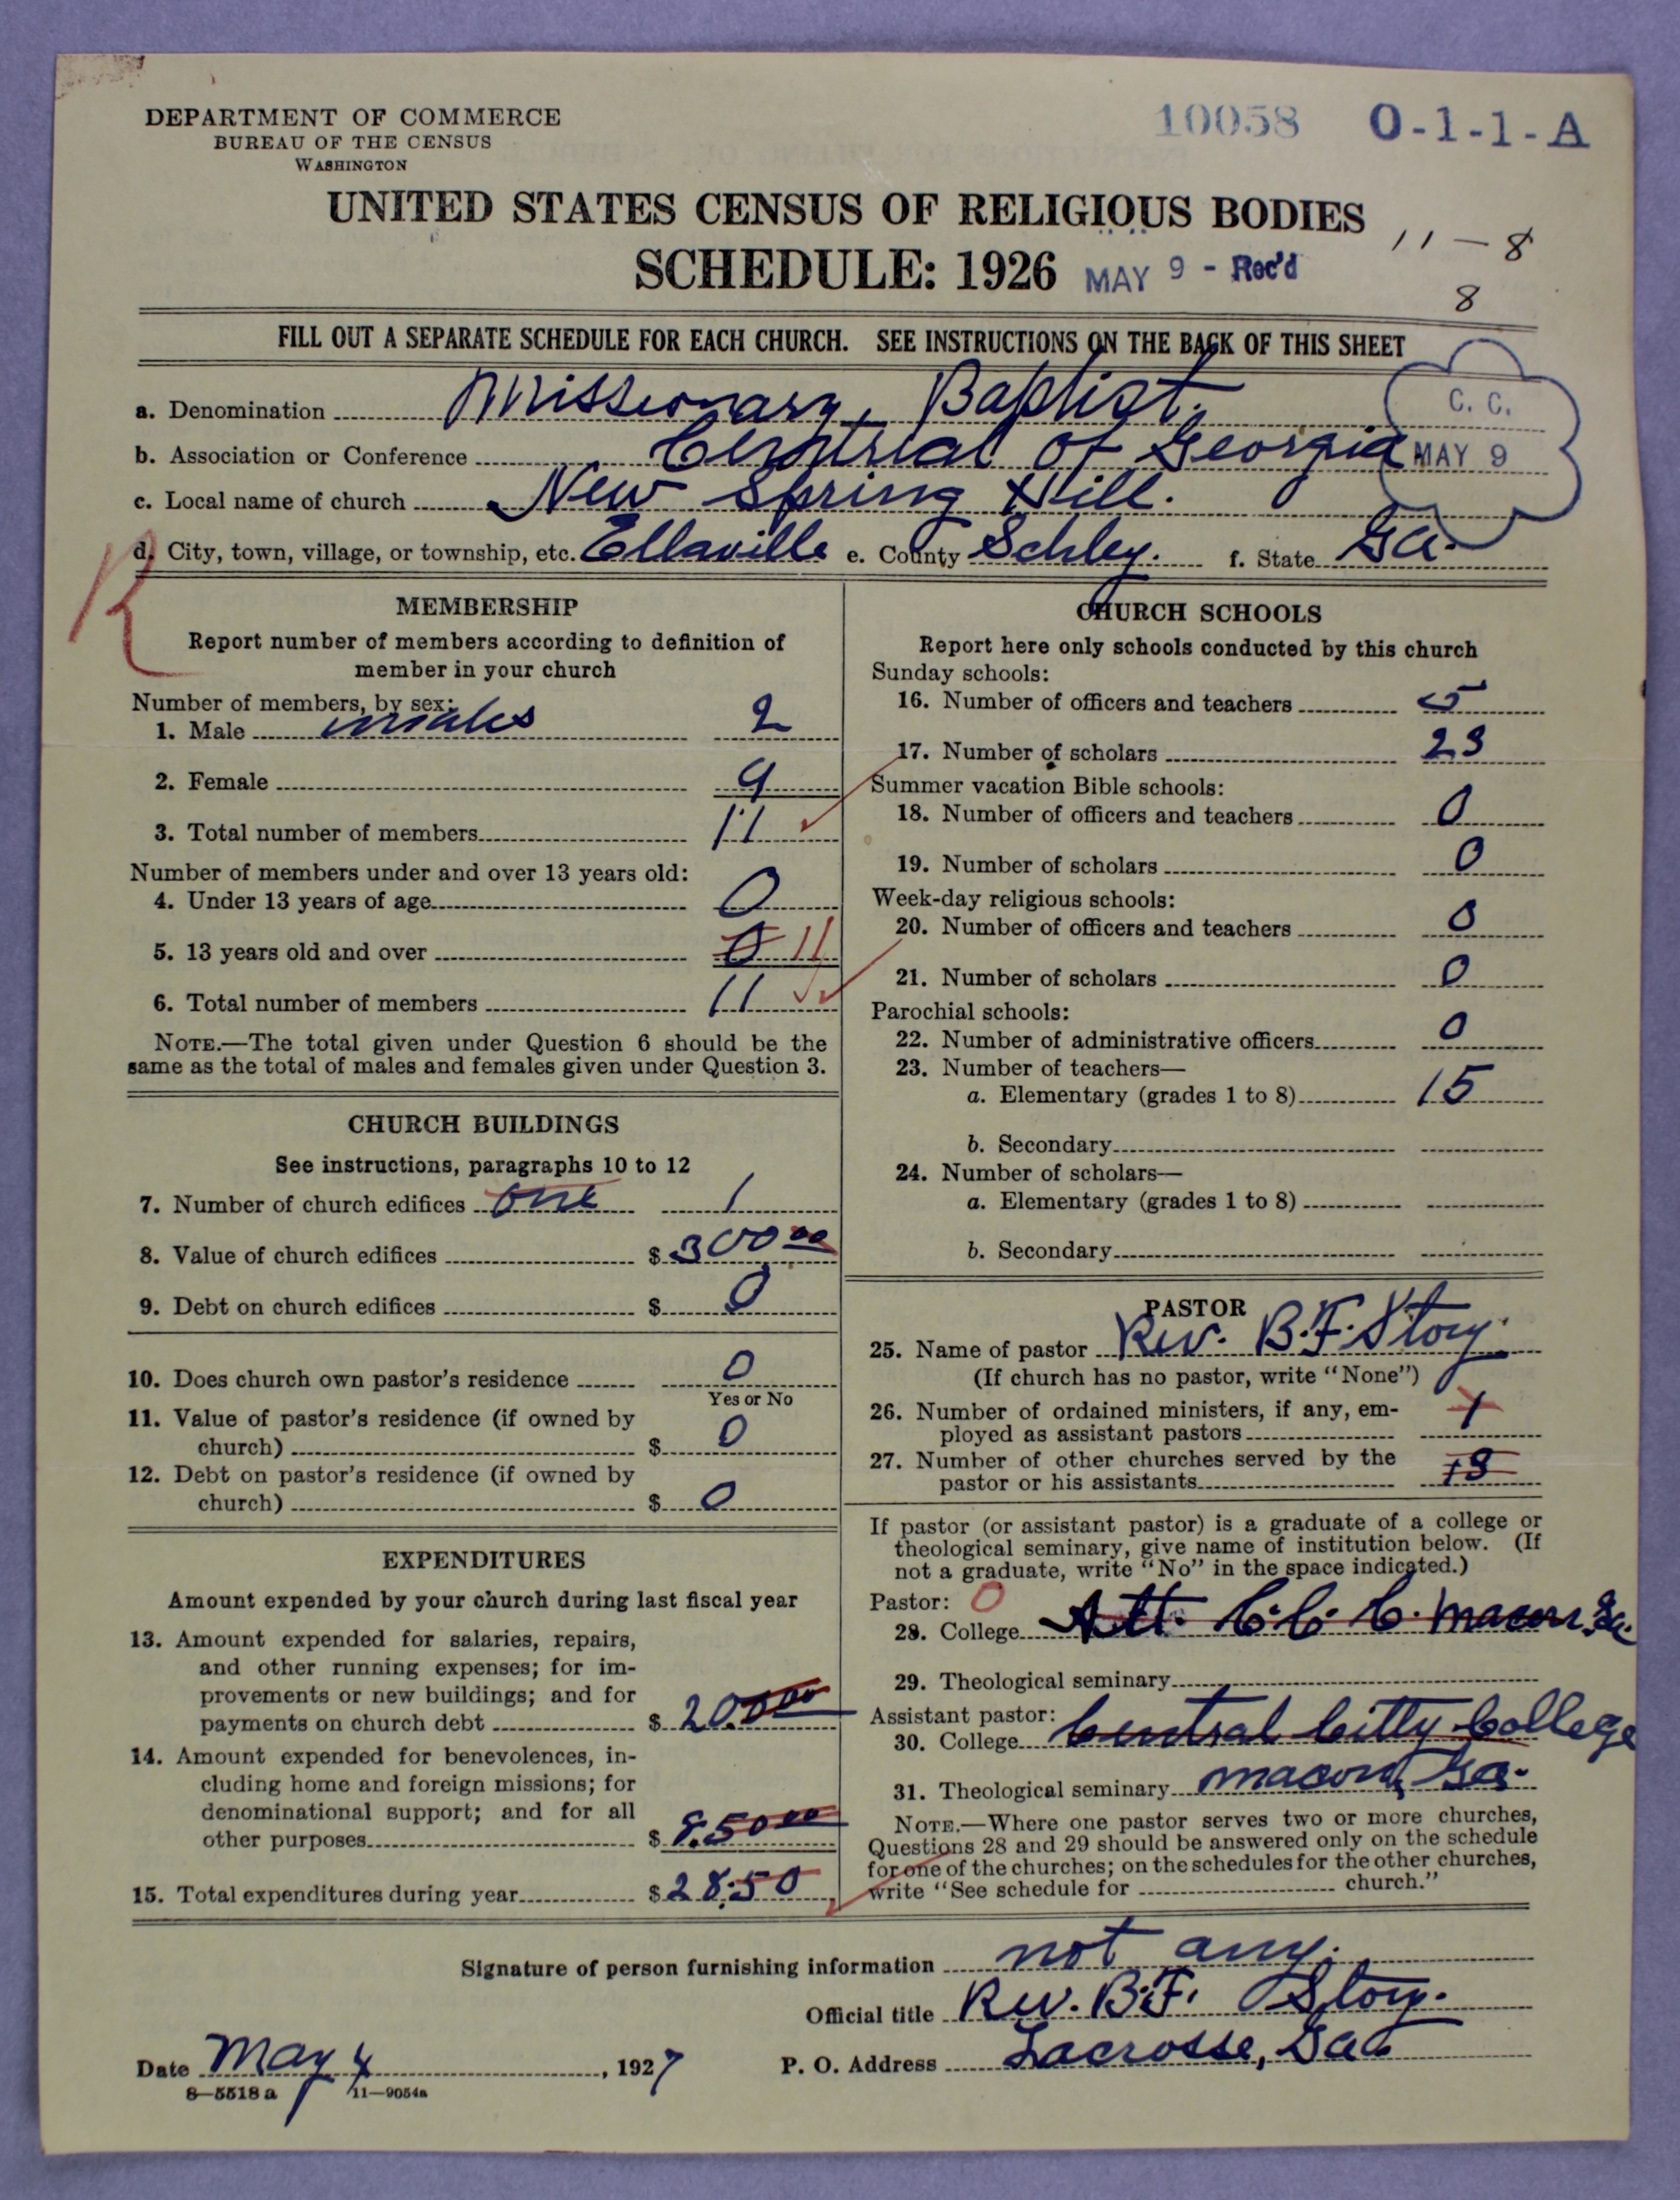 DEPARTMENT OF COMMERCE
BUREAU OF THE CENSUS
WASHINGTON
10058 O-1-1-A
UNITED STATES CENSUS OF RELIGIOUS BODIES
11-8
SCHEDULE: 1926 MAY 9 - Rec'd
8
FILL OUT A SEPARATE SCHEDULE FOR EACH CHURCH. SEE INSTRUCTIONS ON THE BACK OF THIS SHEET
a. Denomination Missionary, Baptist.
C. C.
b. Association or Conference Centrial of Georgia
MAY 9
c. Local name of church New Spring Hill.
R
d. City, town, village, or township, etc. Ellaville e. County Schley. f. State Ga.
MEMBERSHIP
Report number of members according to definition of
member in your church
Number of members, by sex:
1. Male males 2
2. Female 9
3. Total number of members 11
Number of members under and over 13 years old:
4. Under 13 years of age 0
5. 13 years old and over 0 11
6. Total number of members 11
NOTE.—The total given under Question 6 should be the
same as the total of males and females given under Question 3.
CHURCH BUILDINGS
See instructions, paragraphs 10 to 12
7. Number of church edifices one 1
8. Value of church edifices $ 300 00
9. Debt on church edifices $ 0
10. Does church own pastor's residence 0
Yes or No
11. Value of pastor's residence (if owned by
church) $ 0
12. Debt on pastor's residence (if owned by
church) $ 0
EXPENDITURES
Amount expended by your church during last fiscal year
13. Amount expended for salaries, repairs,
and other running expenses; for im-
provements or new buildings; and for
payments on church debt $ 20.00 00
14. Amount expended for benevolences, in-
cluding home and foreign missions; for
denominational support; and for all
other purposes $ 8.50 00
15. Total expenditures during year $ 28.50
CHURCH SCHOOLS
Report here only schools conducted by this church
Sunday schools:
16. Number of officers and teachers 5
17. Number of scholars 23
Summer vacation Bible schools:
18. Number of officers and teachers 0
19. Number of scholars 0
Week-day religious schools:
20. Number of officers and teachers 0
21. Number of scholars 0
Parochial schools:
22. Number of administrative officers 0
23. Number of teachers—
a. Elementary (grades 1 to 8) 15
b. Secondary
24. Number of scholars—
a. Elementary (grades 1 to 8)
b. Secondary
PASTOR
25. Name of pastor Rev. B.F. Story.
(If church has no pastor, write "None")
26. Number of ordained ministers, if any, em-
ployed as assistant pastors 1
27. Number of other churches served by the
pastor or his assistants
If pastor (or assistant pastor) is a graduate of a college or
theological seminary, give name of institution below. (If
not a graduate, write "No" in the space indicated.)
Pastor: 0
28. College Att. C. C. C. Macon. Ga.
29. Theological seminary
Assistant pastor:
30. College Central Citty College
31. Theological seminary macon, Ga.
NOTE.—Where one pastor serves two or more churches,
Questions 28 and 29 should be answered only on the schedule
for one of the churches; on the schedules for the other churches,
write "See schedule for church."
Signature of person furnishing information not any.
Official title Rev. B.F. Story.
Date May 4, 1927 P. O. Address Lacrosse, Ga.
8—5518 a 11—9054a